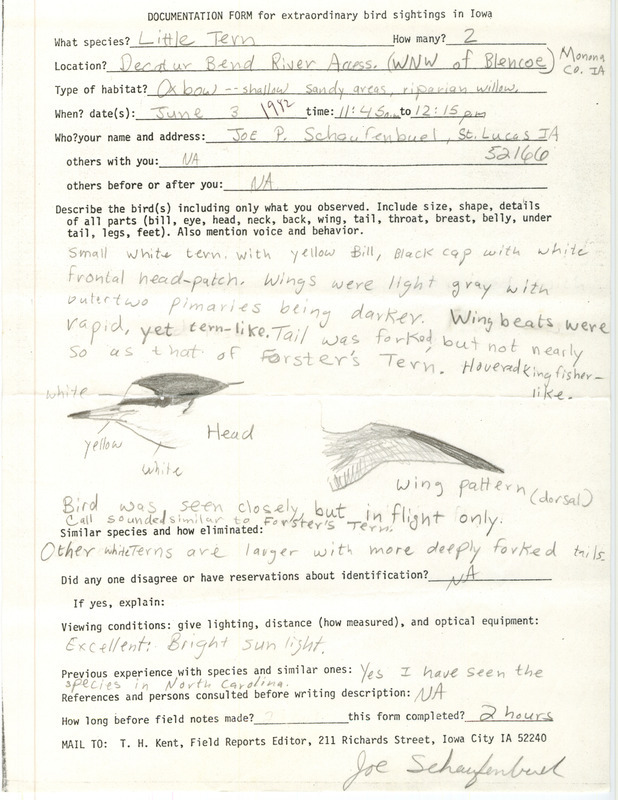 DOCUMENTATION FORM for extraordinary bird sightings in Iowa
What species? Little Tern How many? 2
Location? Decatur Bend River Access. (WNW of Blencoe) Monona Co. IA
Type of habitat? Oxbow -- shallow sandy areas, riparian willow.
When? date(s): June 3 1982 time: 11:45am to 12:15 pm
Who? your name and address: JOE P. Schaufenbuel, St. Lucas IA
52166
others with you: NA
others before or after you: NA
Describe the bird(s) including only what you observed. Include size, shape, details
of all parts (bill, eye, head, neck, back, wing, tail, throat, breast, belly, under
tail, legs, feet). Also mention voice and behavior.
Small white tern. with yellow Bill, Black cap with white
frontal head-patch. Wings were light gray with
outer two pimaries being darker. Wing beats were
rapid, yet tern-like. Tail was forked, but not nearly
so as that of Forster's Tern. Hovered kingfisher-
like.
white
yellow
white
Head
wing pattern (dorsal)
Bird was seen closely, but in flight only.
Call sounded similar to Forster's Tern.
Similar species and how eliminated:
Other white Terns are larger with more deeply forked tails.
Did any one disagree or have reservations about identification? NA
If yes, explain:
Viewing conditions: give lighting, distance (how measured), and optical equipment:
Excellent: Bright sun light.
Previous experience with species and similar ones: Yes I have seen the
species in North Carolina.
References and persons consulted before writing description: NA
How long before field notes made? this form completed? 2 hours
MAIL TO: T. H. Kent, Field Reports Editor, 211 Richards Street, Iowa City IA 52240
Joe Schaufenbuel